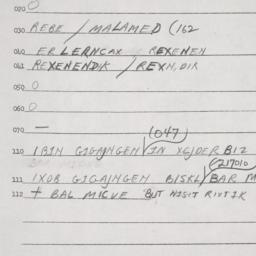 020 0
030 REBE / MALAMED (162
040 ERLERNCAX REXENEN
041 REXENENDIK / REXN, DIK
050 0
060 0
070 —
(047)
110 IBIN GIGAJNGEN IN XGJDER BIZ
(217010
111 IXOB GIGAJNGEN BISKL BAR M
112 + BAL MICVE BUT NISIT RIVTIK